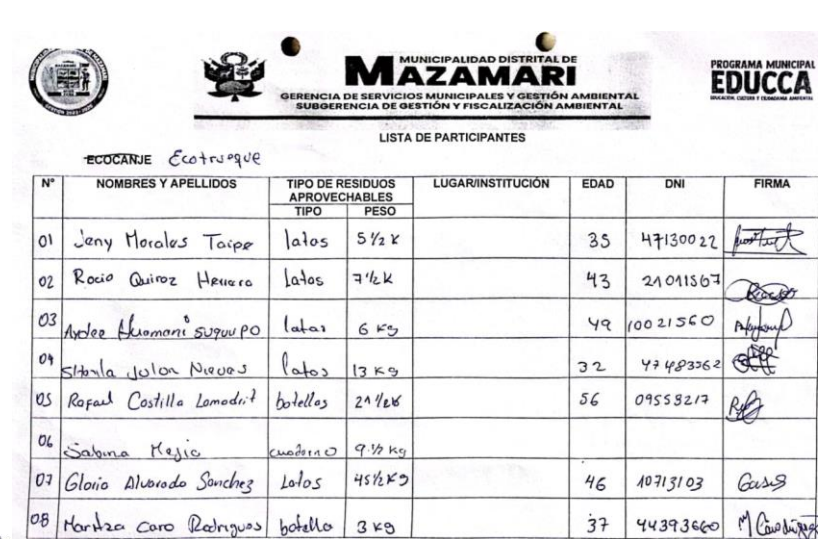 MUNICIPALIDAD DISTRITAL DE
MAZAMARI
GERENCIA DE SERVICIOS MUNICIPALES Y GESTIÓN AMBIENTAL
SUBGERENCIA DE GESTIÓN Y FISCALIZACIÓN AMBIENTAL
PROGRAMA MUNICIPAL
EDUCCA
EDUCACIÓN, CULTURA Y CIUDADANÍA AMBIENTAL
LISTA DE PARTICIPANTES
ECOCANJE Ecotrueque
N° NOMBRES Y APELLIDOS TIPO DE RESIDUOS APROVECHABLES LUGAR/INSTITUCIÓN EDAD DNI FIRMA
TIPO PESO
01 Jeny Morales Taipe latas 5 1/2 K 35 47130022
02 Rocio Quiroz Herrera Latas 7 1/2 K 43 21011567
03 Aydee Huamani latas 6 Kg 49 10021560
04 Nieves latas 13 Kg 32 47483562
05 Rafael Costilla botellas 21 1/2 K 56 09558217
06 Sabina Mejia cuaderno 9 1/2 Kg
07 Gloria Alvarado Sanchez Latas 45 1/2 Kg 46 10713103
08 Maritza Caro Rodriguez botella 3 Kg 37 44393660